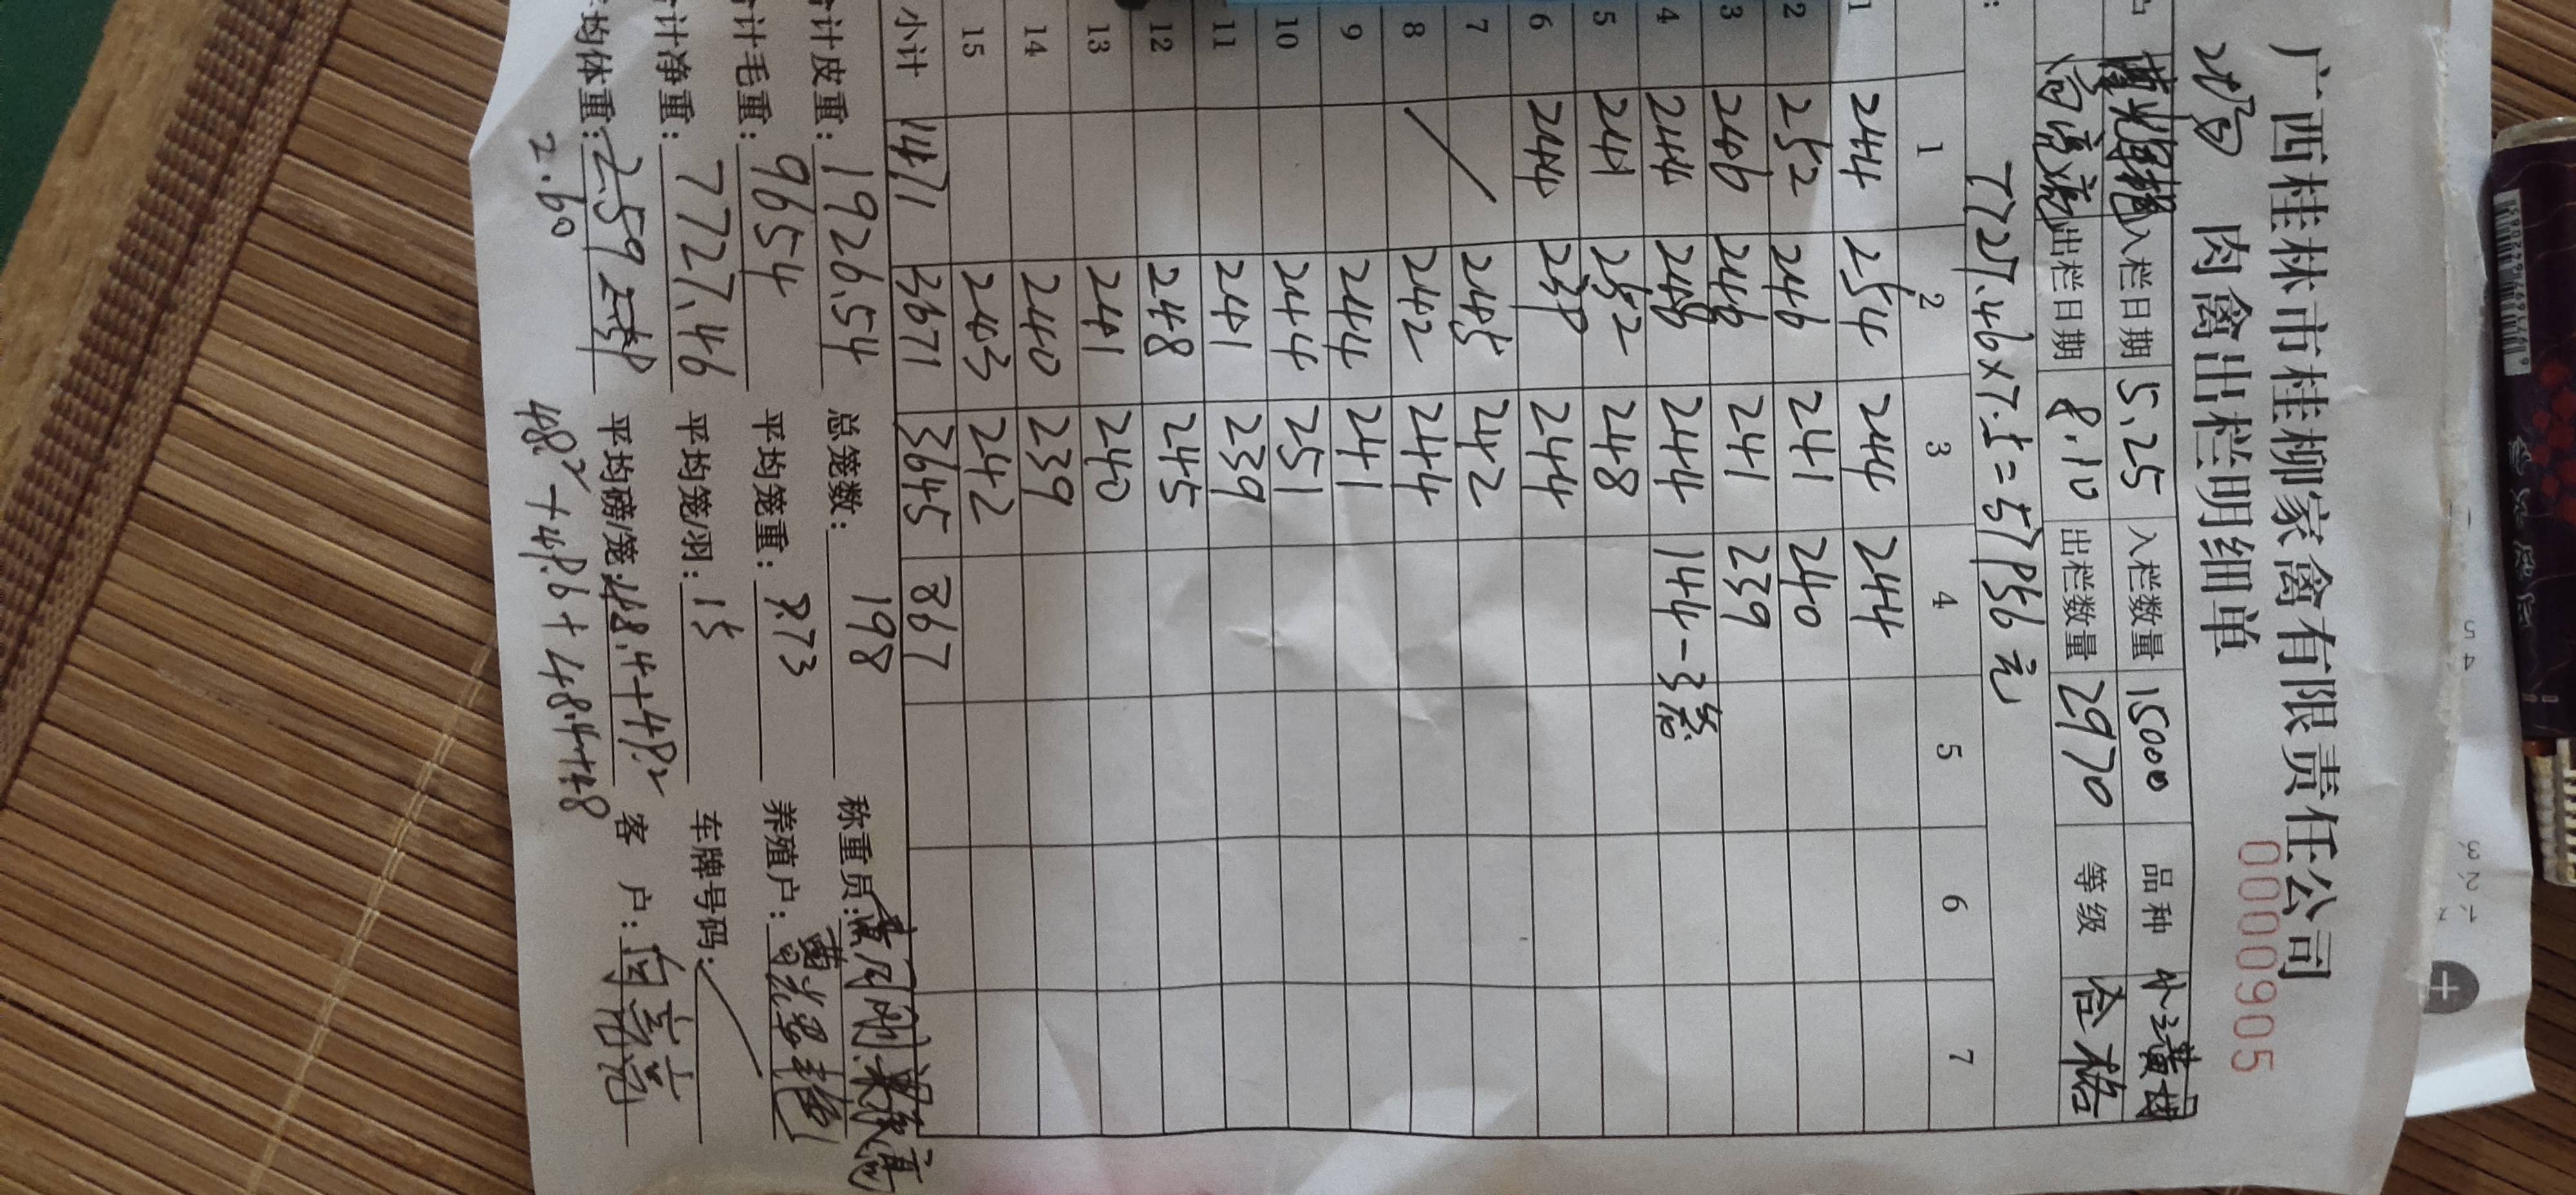 广西桂林市桂柳家禽有限责任公司
肉禽出栏明细单
0000905
入栏日期 5.25 入栏数量 15000 品种
出栏日期 8.10 出栏数量 2970 等级 合格
7727.46×7.5=57956元
1 2 3 4 5 6 7
1 244 254 244 244
2 252 246 241 240
3 246 246 241 239
4 244 248 244 144-3笼
5 241 252 248
6 244 239 244
7 245 242
8 242 244
9 244 241
10 244 251
11 241 239
12 248 245
13 241 240
14 240 239
15 243 242
小计 1471 3671 3645 867
计皮重: 1926.54 总笼数: 198 称重员:
计毛重: 9654 平均笼重: 9.73 养殖户:
计净重: 7727.46 平均笼/羽: 15 车牌号码:
均体重: 2.59 平均磅/笼: 48.4+48.2 客户:
2.60 48.2+48.6+48.4+48